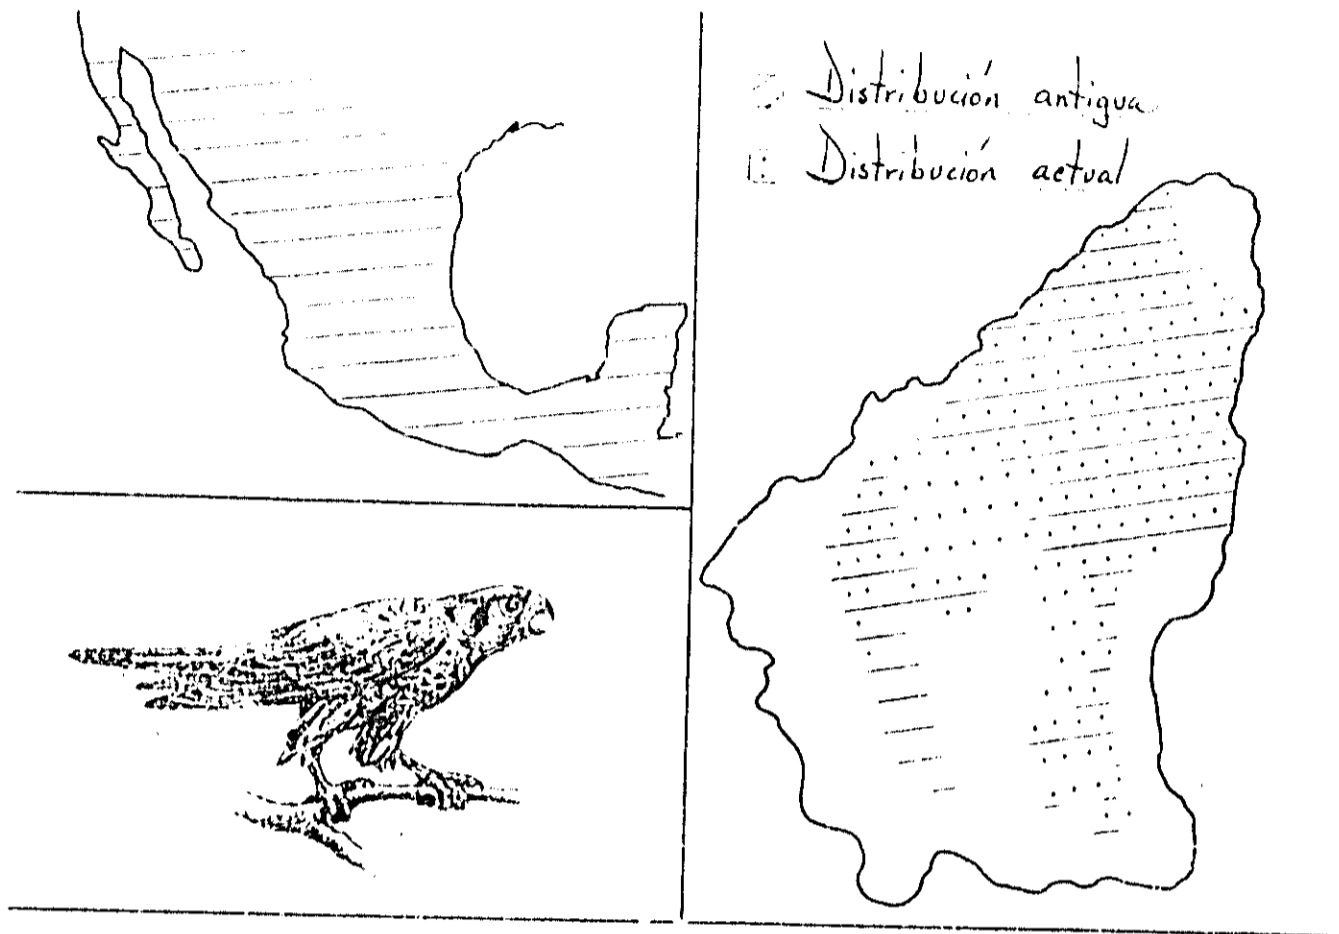 Distribución antigua
Distribución actual